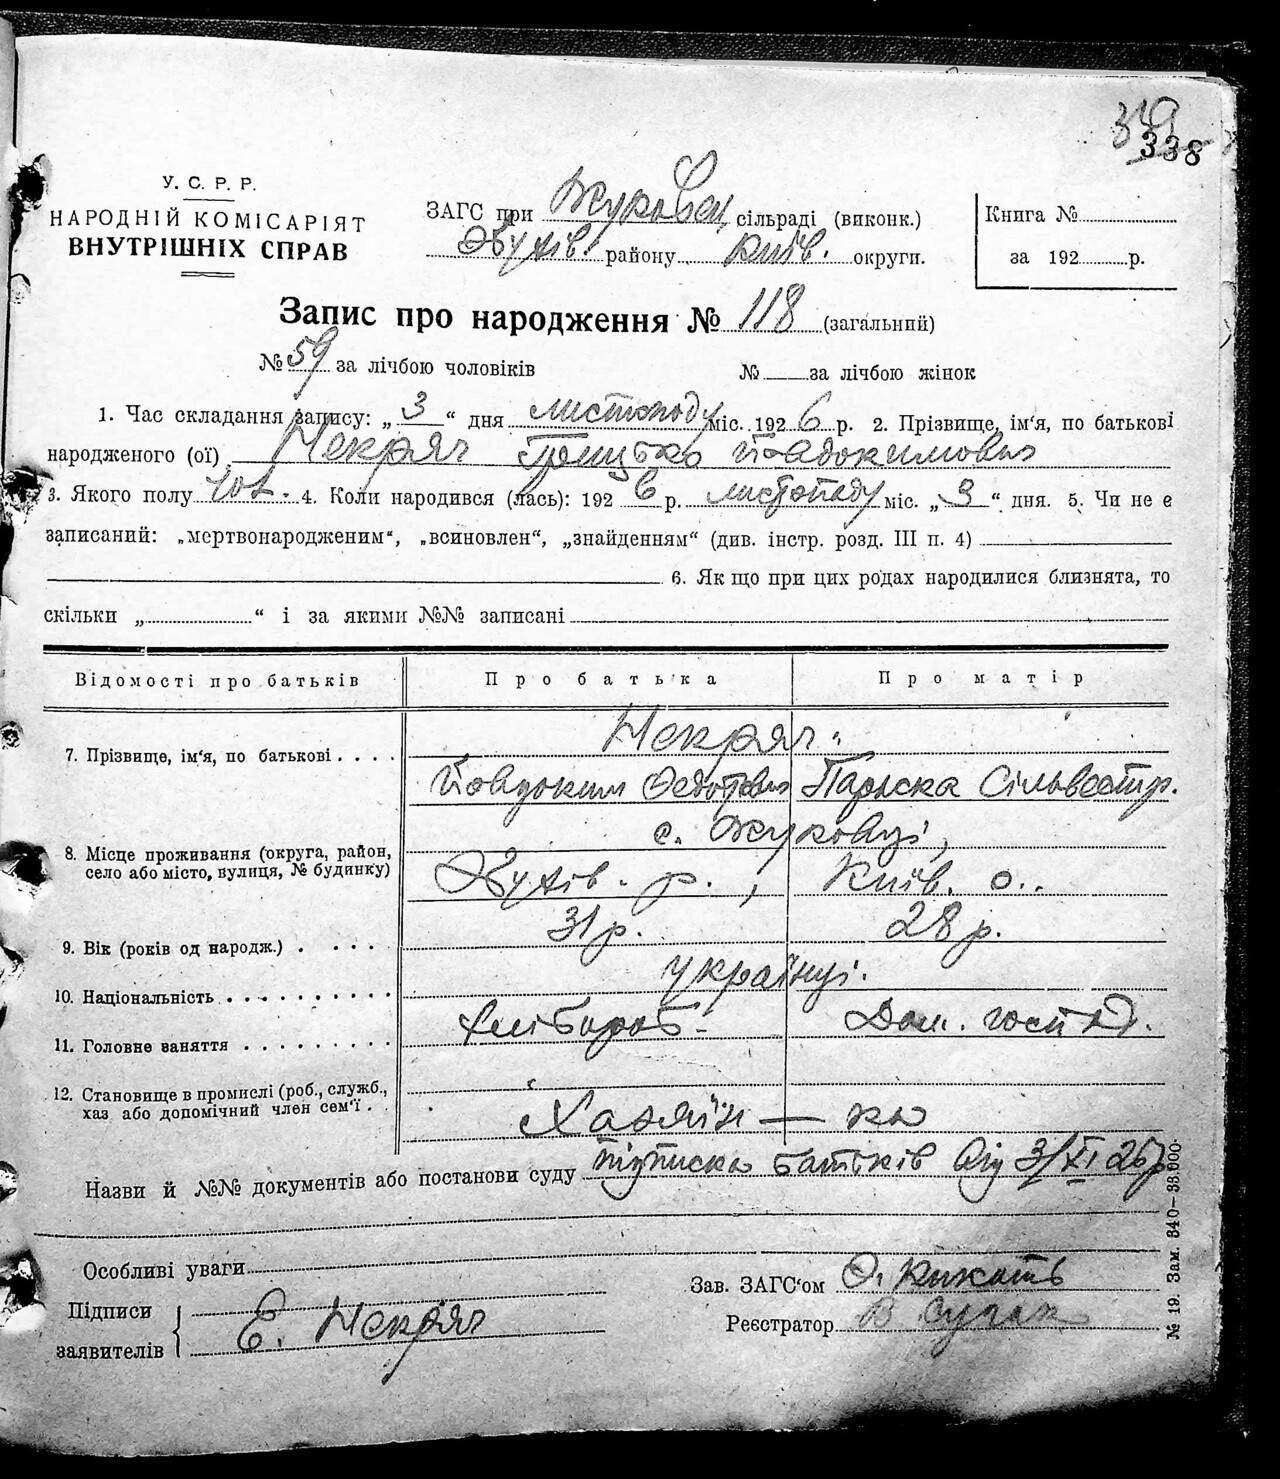 339
338
У. С. Р. Р.
НАРОДНІЙ КОМІСАРІЯТ
ВНУТРІШНІХ СПРАВ
ЗАГС при Жуковец. сільраді (виконк.)
Обухів. району Київ. округи.
Книга №
за 192 р.
Запис про народження № 118 (загальний)
№ 59 за лічбою чоловіків № за лічбою жінок
1. Час складання запису: „ 3 “ дня листопаду міс. 192 6 р. 2. Прізвище, ім‘я, по батькові
народженого (ої) Некряч Грицько Йовдокимович
3. Якого полу чол. 4. Коли народився (лась): 192 6 р. листопаду міс. „ 3 “ дня. 5. Чи не є
записаний: „мертвонародженим“, „всиновлен“, „знайденням“ (див. інстр. розд. III п. 4)
6. Як що при цих родах народилися близнята, то
скільки „ “ і за якими №№ записані
Відомості про батьків Про батька Про матір
7. Прізвище, ім‘я, по батькові Некряч.
Йовдоким Федотович Параска Сільвестр.
с. Жуковці,
8. Місце проживання (округа, район,
село або місто, вулиця, № будинку) Обухів. р., Київ. о.
9. Вік (років од народж.) 31 р. 28 р.
10. Національність українці.
11. Головне заняття хлібороб. Дом. госп
12. Становище в промислі (роб., служб.,
хаз або допомічний член сем‘ї Хазяїн — ка
Назви й №№ документів або постанови суду підписка батьків від 3/XI 26 р
Особливі уваги
Підписи
заявителів Є. Некряч
Зав. ЗАГС‘ом О.
Реєстратор В.
№ 19. Зам. 840—38.000.